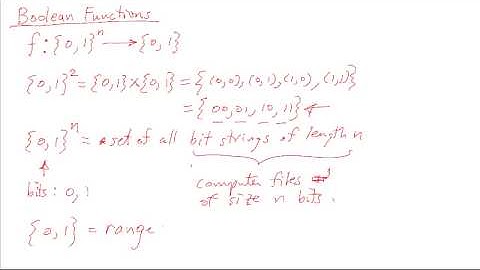 Boolean Functions
f : {0,1}ⁿ → {0,1}
{0,1}² = {0,1} × {0,1} = {(0,0), (0,1), (1,0), (1,1)}
= {00, 01, 10, 11} ←
{0,1}ⁿ = set of all bit strings of length n
bits : 0, 1
computer files
of size n bits.
{0,1} = range